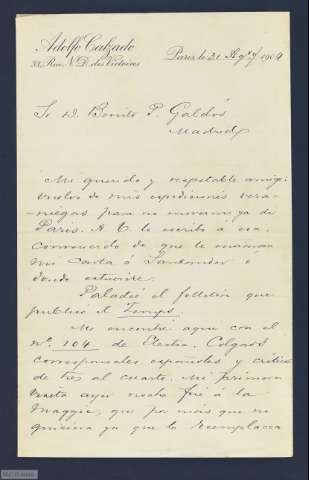 Adolfo Calzado
33, Rue N. D. des Victoires
Paris, le 21 1904
Sr. D. Benito P. Galdós
Madrid
Mi querido y respetable amigo:
vuelvo de mis expediciones vera-
niegas para no moverme ya de
Paris. A V. le escribo a esa,
convencido de que le enviarán
mi carta á Santander ó
donde estuviere.
Paladeé el folletín que
publicó el Temps.
Me encontré aquí con el
nº. 104 de Electra. Colgars
corresponsales españoles y críticos
de tres al cuarto. Mi primera
visita ayer noche fué á la
Maggie, que por más que no
quisiera ya que la reemplazca